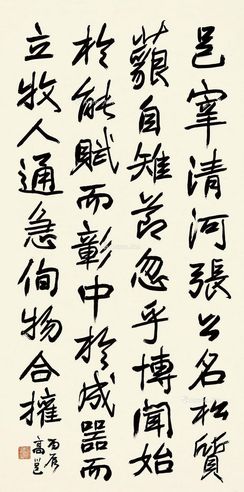 邑宰清河張公名松質
藐自雉莭忽乎博聞始
於能賦而彰中於成器而
立牧人通急侚物合擁
丙辰
高邕